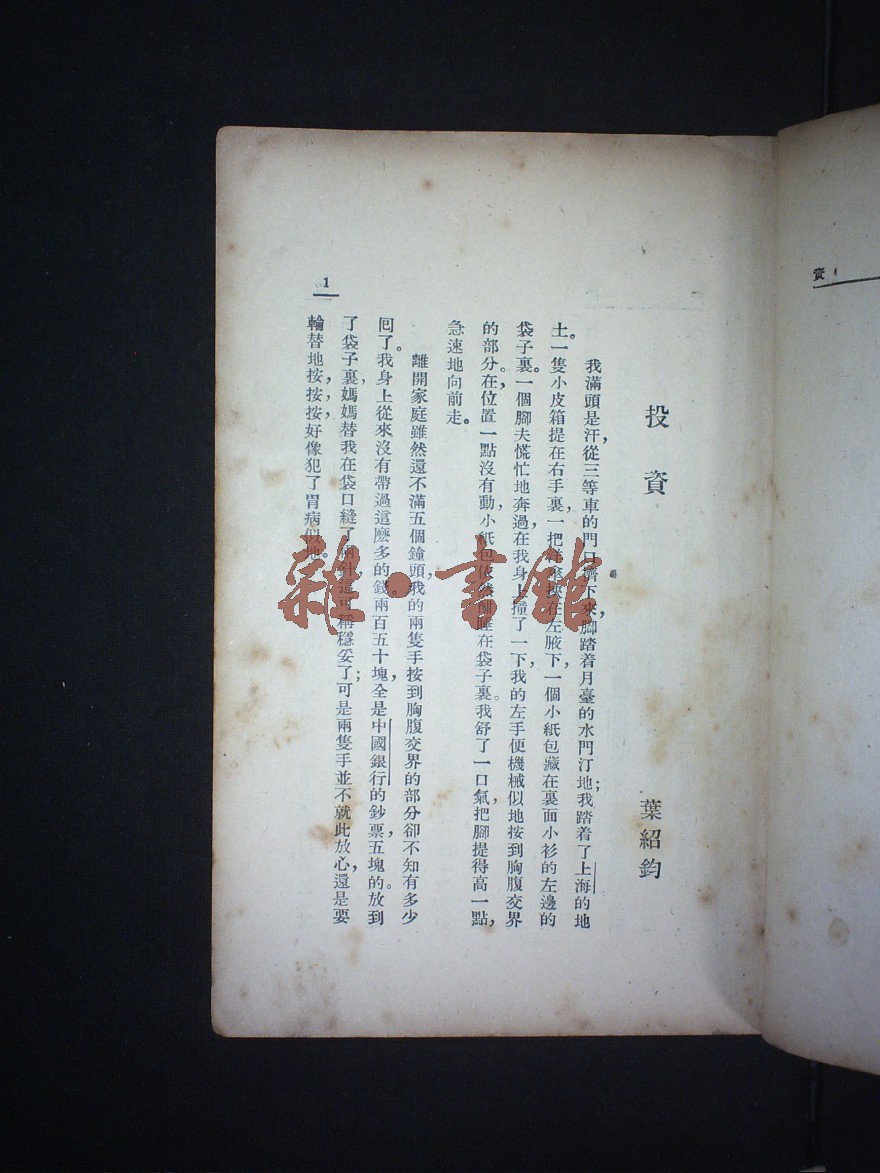 投資
葉紹鈞
我滿頭是汗，從三等車的門口擠下來，脚踏着月臺的水門汀地；我踏着了上海的地
土。一隻小皮箱提在右手裏，一把洋傘挾在左腋下，一個小紙包藏在裏面小衫的左邊的
袋子裏。一個腳夫慌忙地奔過，在我身上撞了一下，我的左手便機械似地按到胸腹交界
的部分。在，位置一點沒有動，小紙包依然酣睡在袋子裏。我舒了一口氣，把腳提得高一點，
急速地向前走。
離開家庭雖然還不滿五個鐘頭，我的兩隻手按到胸腹交界的部分卻不知有多少
回了。我身上從來沒有帶過這麽多的錢。兩百五十塊，全是中國銀行的鈔票，五塊的。放到
了袋子裏，媽媽替我在袋口縫了兩針，這可稱穩妥了；可是兩隻手並不就此放心，還是要
輪替地按，按，按，好像犯了胃病似地。
1
資
雜·書館